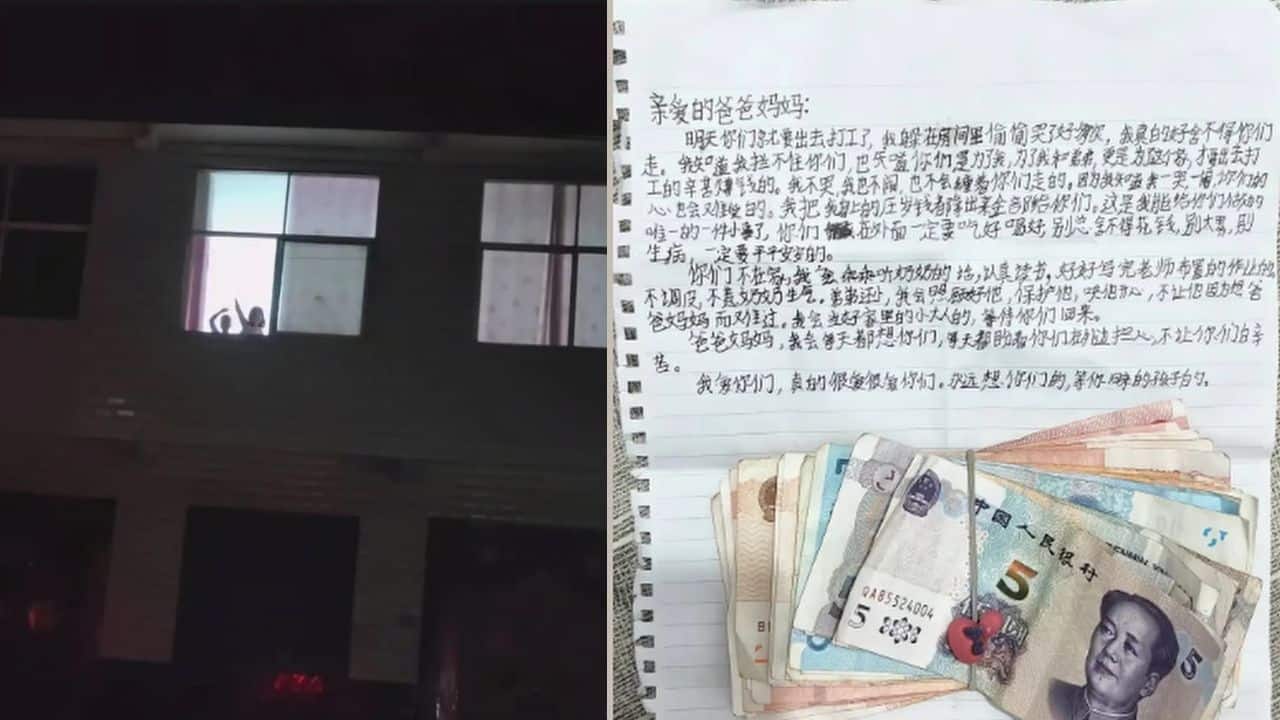 亲爱的爸爸妈妈:
明天你们就要出去打工了,我躲在房间里偷偷哭了好多次,我真的好舍不得你们
走。我知道我拦不住你们,也知道你们是为了我,为了我和弟弟,更是为这个家,才出去打
工的辛苦赚钱的。我不哭,我也不闹,也不会缠着你们走的。因为我知道我一哭一闹,你们的
心也会难受的。我把我身上的压岁钱都拿出来全部给你们。这是我能给你们做的
唯一的一件小事了,你们 在外面一定要吃好喝好,别总舍不得花钱,别太累,别
生病,一定要平平安安的。
你们不在家,我会乖乖听奶奶的话,认真读书,好好写完老师布置的作业
不调皮,不惹奶奶生气。弟弟还小,我会照顾好他,保护他,哄他开心,不让他因为想爸
爸妈妈而难过。我会当好家里的小大人的,等待你们回来。
爸爸妈妈,我会每天都想你们,每天都盼着你们 不让你们白辛
苦。
我爱你们,真的很爱很爱你们。永远想你们的,等你 的孩子
中国人民银行
5
QA85524004
5
5